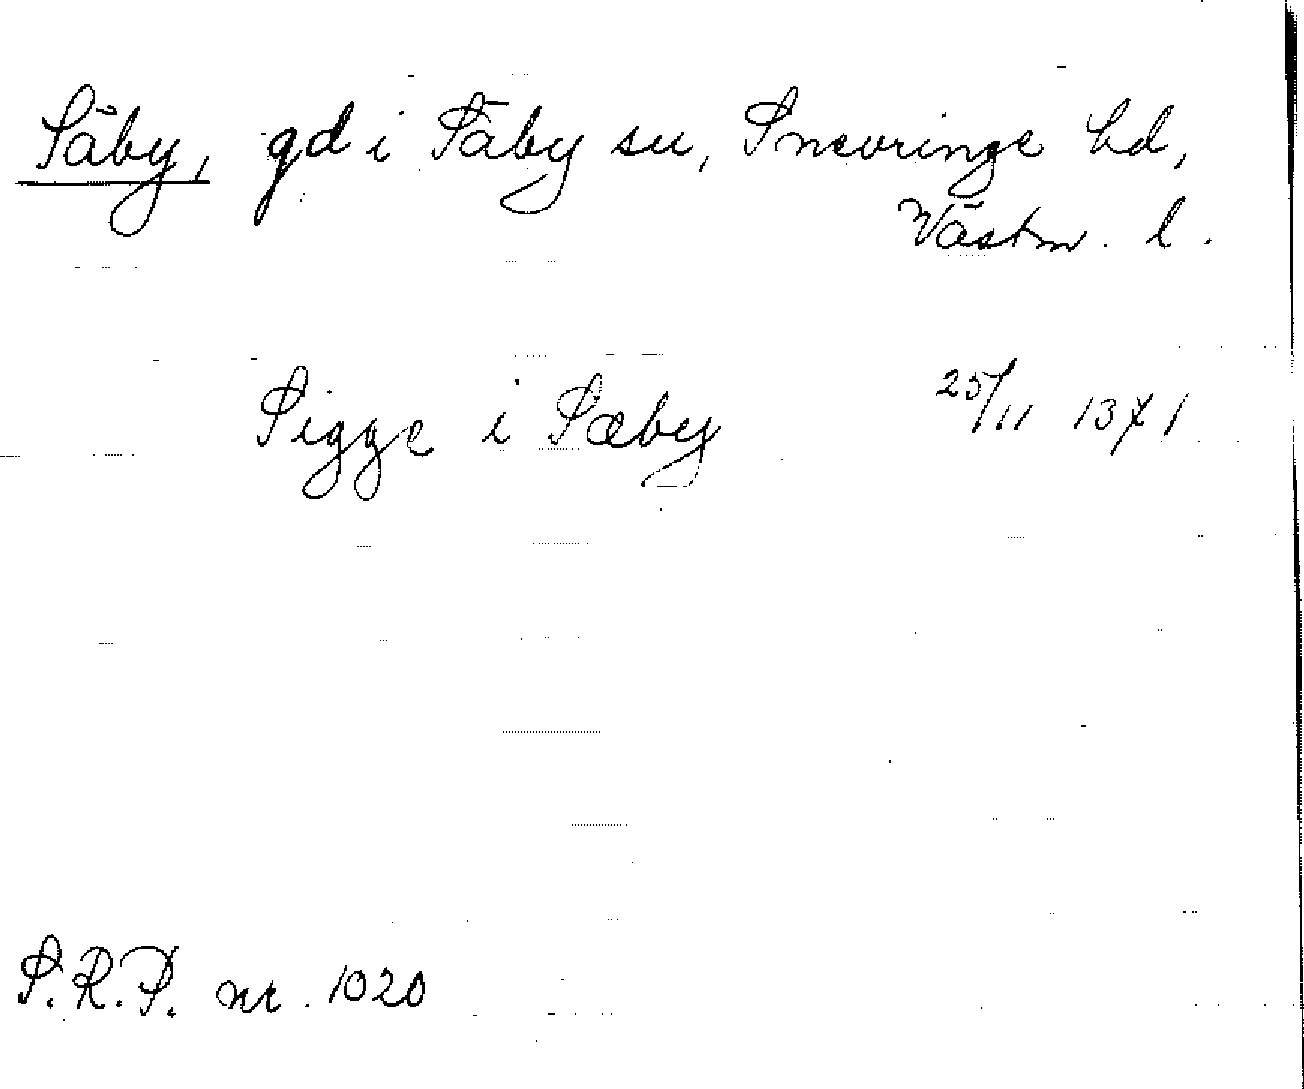 Säby, gd i Säby sn, Snevringe hd,
Västm. l.
Sigge i Sæby 25/11 1371
S.R.P. nr. 1020